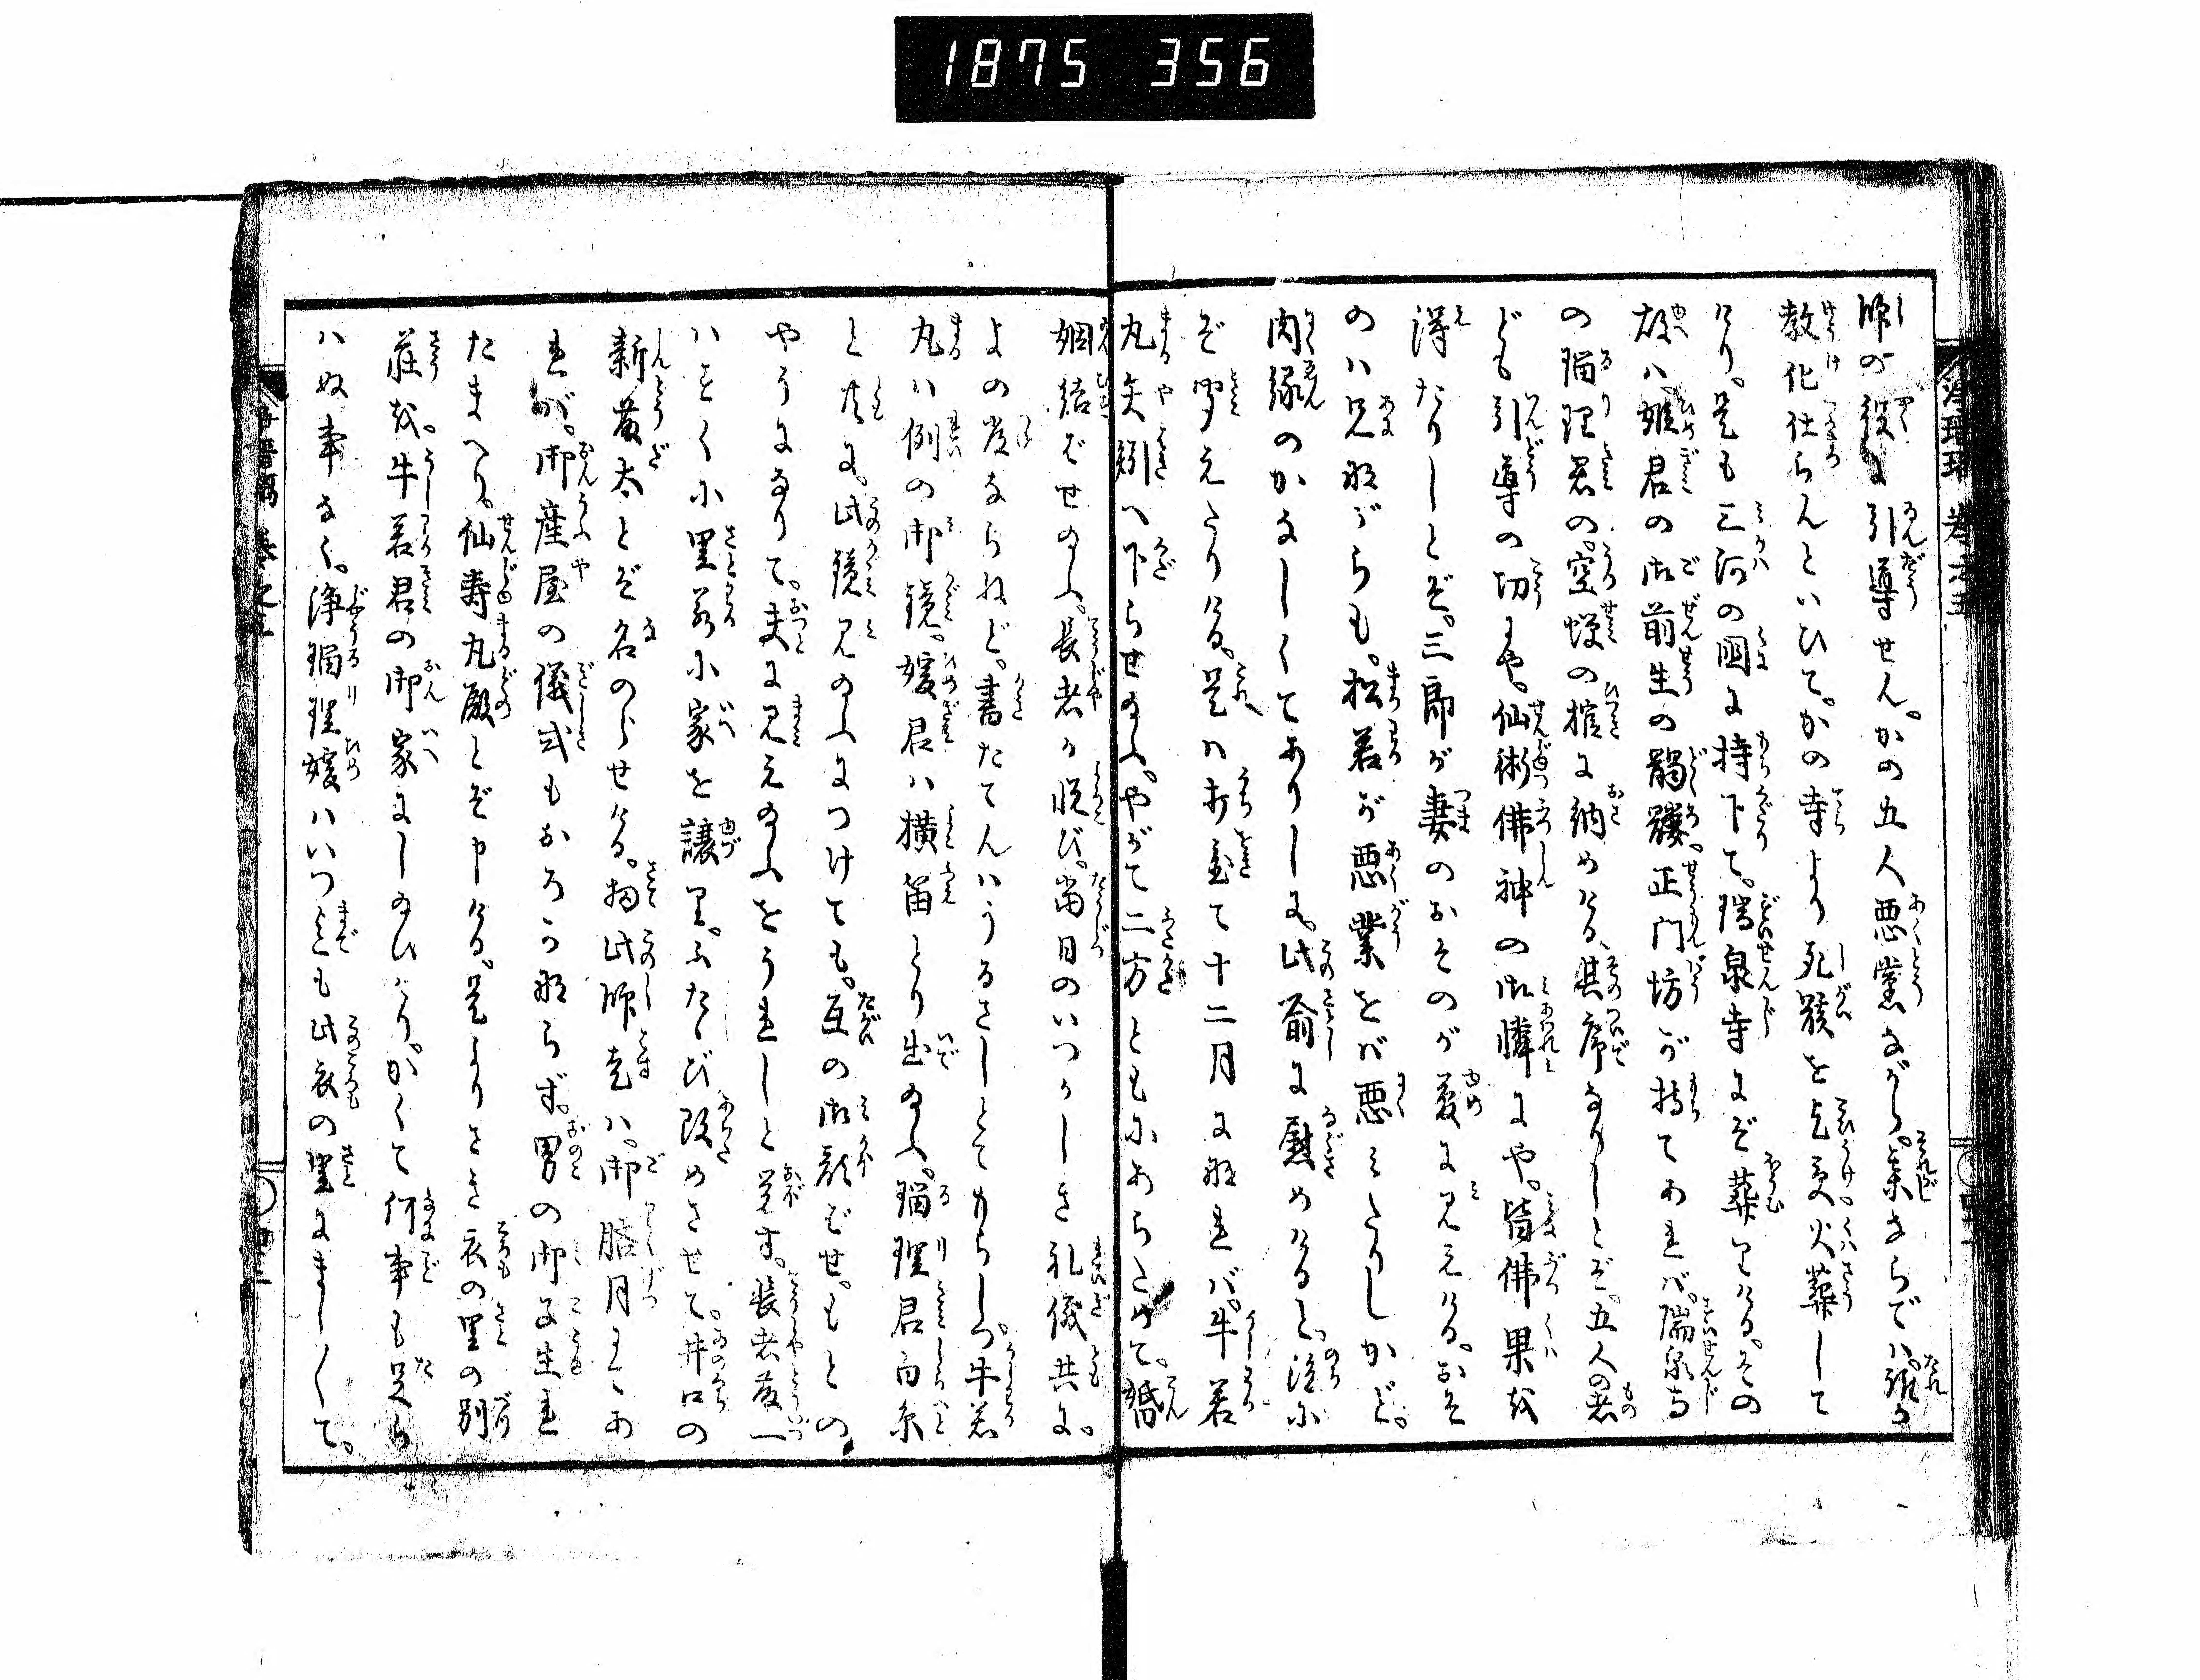 1875 356
浄瑠璃 巻之五
師の役に引導せん。かの五人悪黨ながら。某さらでハ誰か
教化仕らんといひて。かの寺より死骸を乞受火葬して
けり。是も三河の國に持下て。瑞泉寺にぞ葬りける。その
故ハ。姫君の御前生の髑髏。正門坊が持てあれバ。瑞泉寺
の瑠理君の。空蝉の棺に納めける。其序なりしとぞ。五人の者
ども引導の切にや。仙術佛神の御憐にや。皆佛果を
得たりしとぞ。三郎が妻のおそのが夢に見えける。おそ
のハ兄ながらも。松若が悪業をバ悪ミたりしかど。
肉縁のかなしくてありしに。此諭に慰めけると。後に
ぞ聞えたりける。是ハ打置て十二月になれバ。牛若
丸矢矧へ下らせ給ふ。やがて二方ともにあらためて。婚
姻結ばせ給ふ。長者が悦び。當日のいつくしき礼儀共に。
よの常ならねど。書たてんハうるさしとてもらしつ。牛若
丸ハ例の御鏡。媛君ハ横笛とり出給ふ。瑠理君白糸
と共に。此鏡見給ふにつけても。互の御影ぞせ。もとの
やうになりて。夫に見え給ふをうれしと覚す。長者藤一
ハをく小里若小家を譲り。ふたゝび改めさせて。井口の
新藤太とぞ名のらせける。扨此師走ハ。御臨月にてあ
れバ。御産屋の儀式もおろかならず。男の御子生れ
たまへり。仙寿丸殿とぞ申ける。是よりさき衣の里の別
荘を。牛若君の御家にし給ひけり。かくて何事も足ら
ハぬ事なく。浄瑠理媛ハいつまでも此衣の里にまし〳〵て。